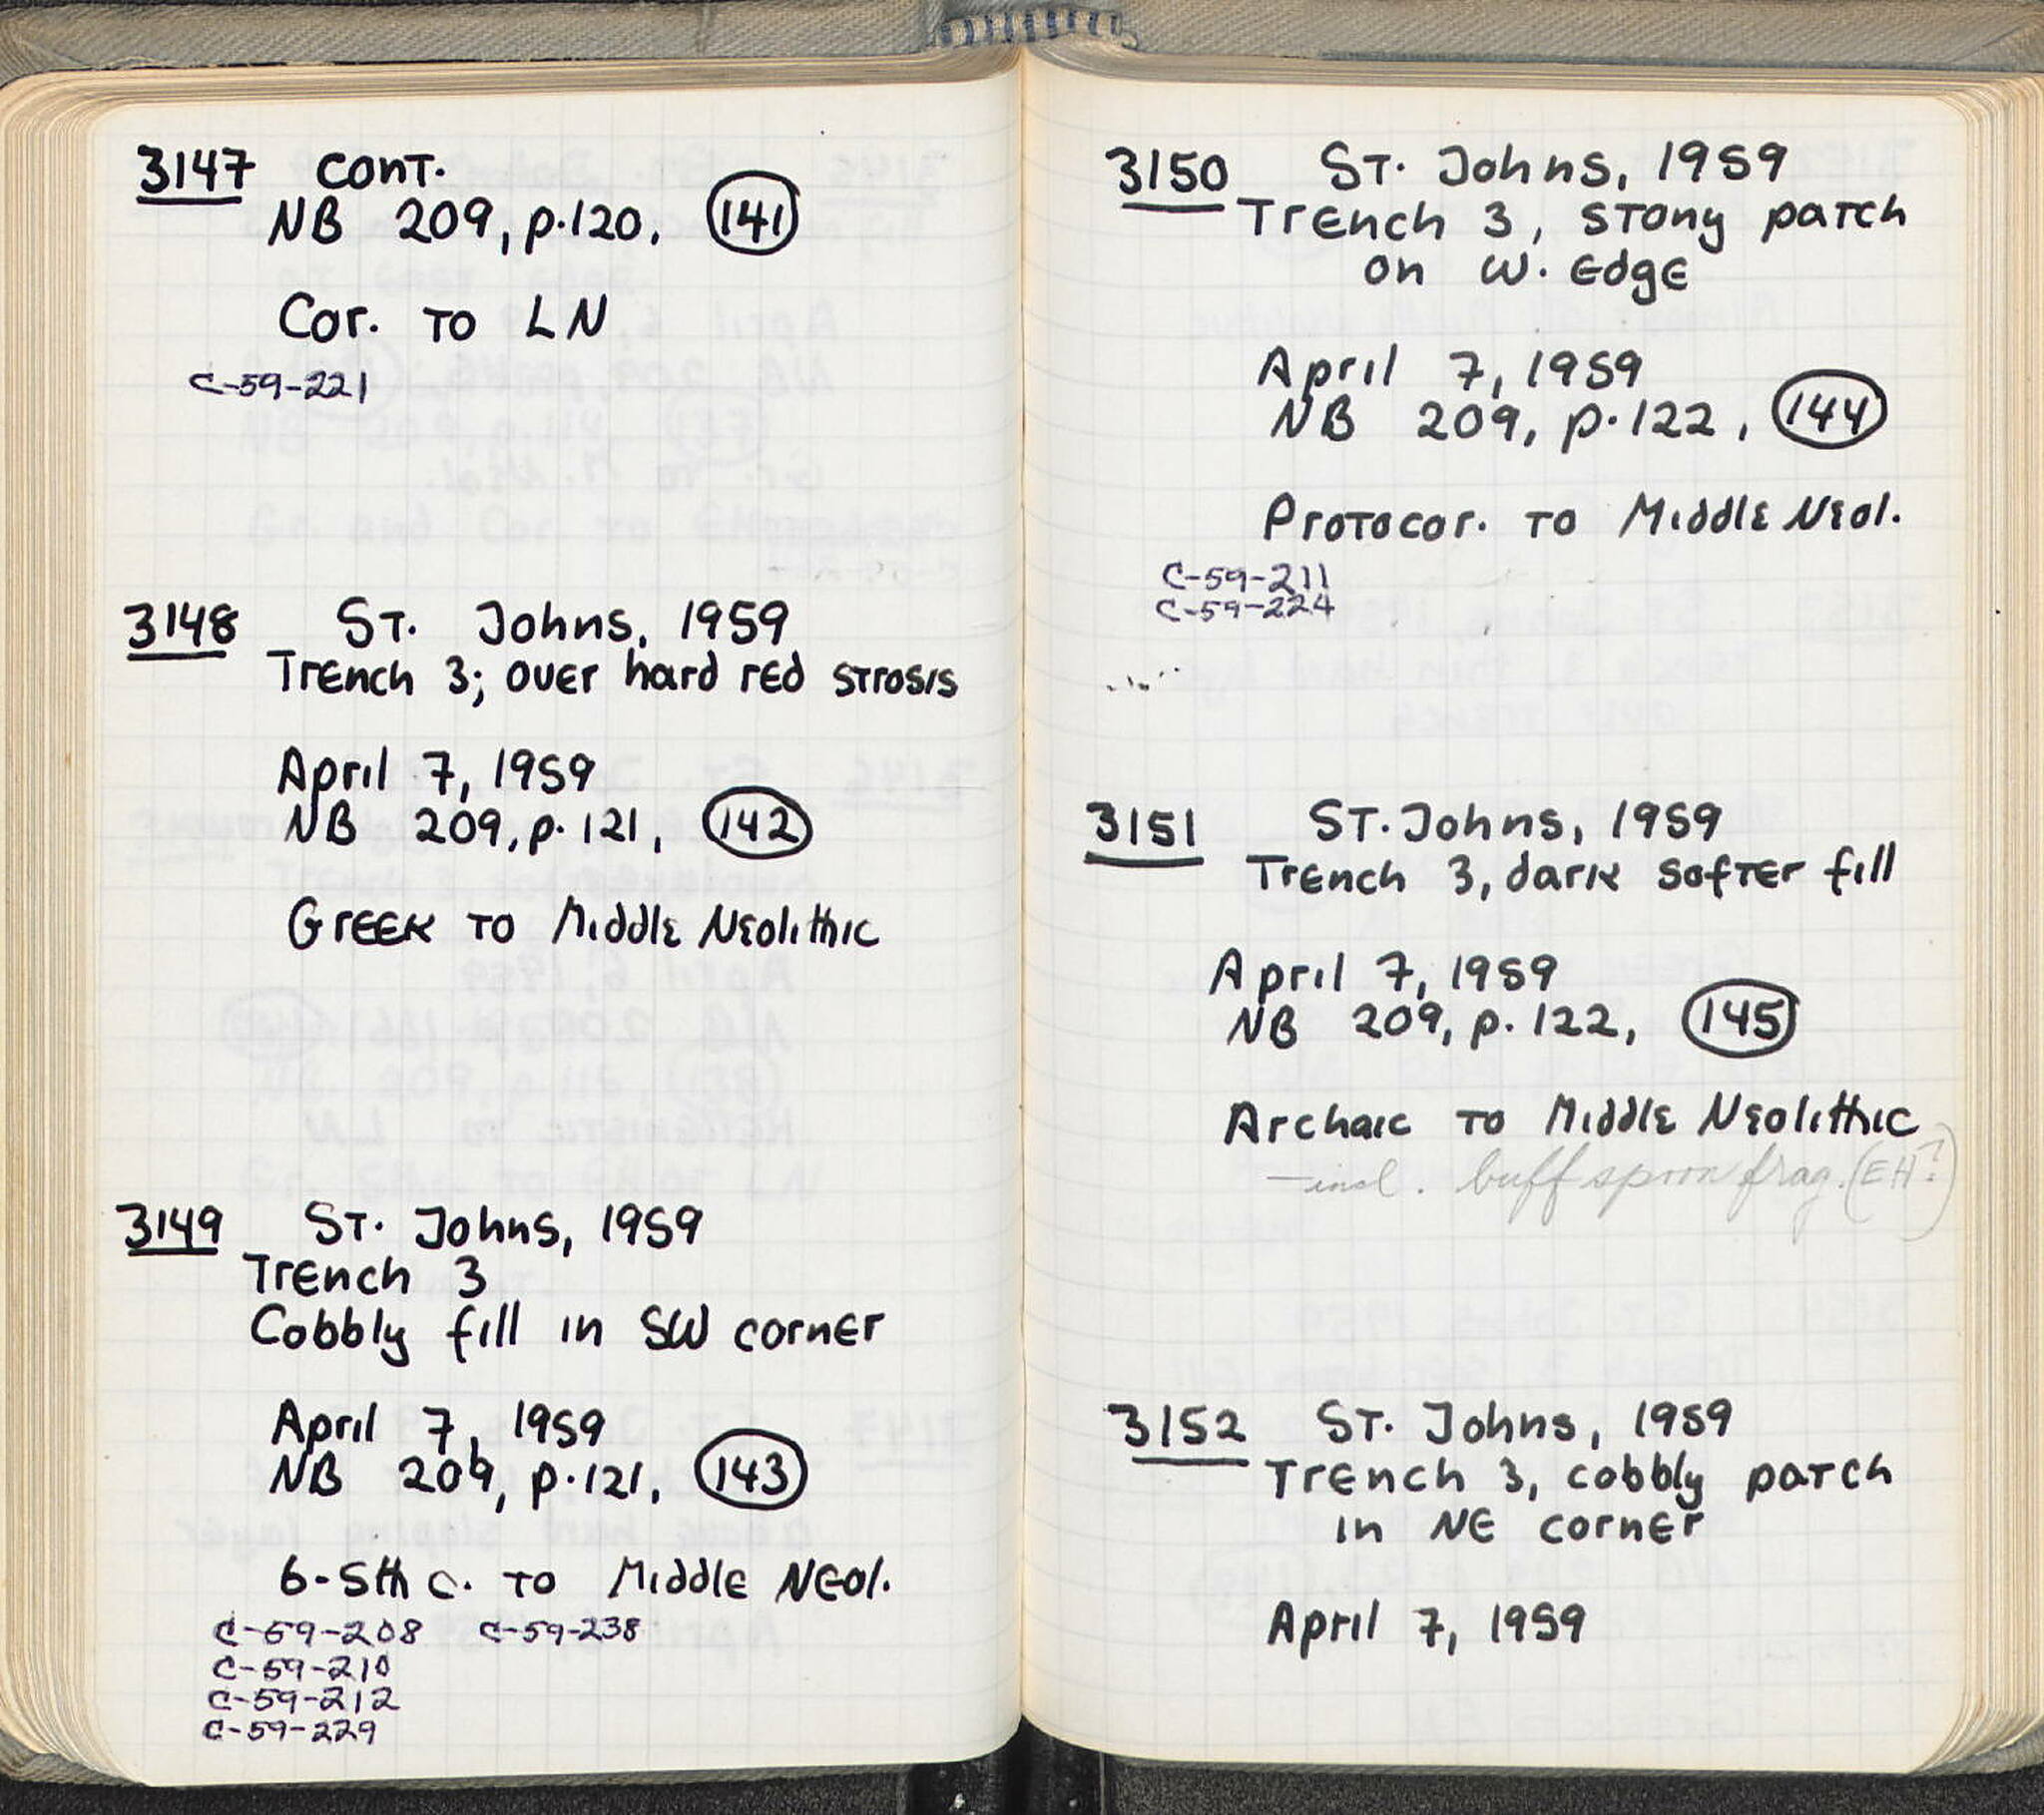 3147 cont.
NB 209, p.120, 141
Cor. to LN
C-59-221
3148 St. Johns, 1959
Trench 3; over hard red strosis
April 7, 1959
NB 209, p. 121, 142
Greek to Middle Neolithic
3149 St. Johns, 1959
Trench 3
Cobbly fill in SW corner
April 7, 1959
NB 209, p.121, 143
6-5th c. to Middle Neol.
C-59-208 C-59-238
C-59-210
C-59-212
C-59-229
3150 St. Johns, 1959
Trench 3, stony patch
on W. Edge
April 7, 1959
NB 209, p.122, 144
Protocor. to Middle Neol.
C-59-211
C-59-224
3151 St. Johns, 1959
Trench 3, dark softer fill
April 7, 1959
NB 209, p. 122, 145
Archaic to Middle Neolithic
—incl. buff spoon frag. (EH?)
3152 St. Johns, 1959
Trench 3, cobbly patch
in NE corner
April 7, 1959